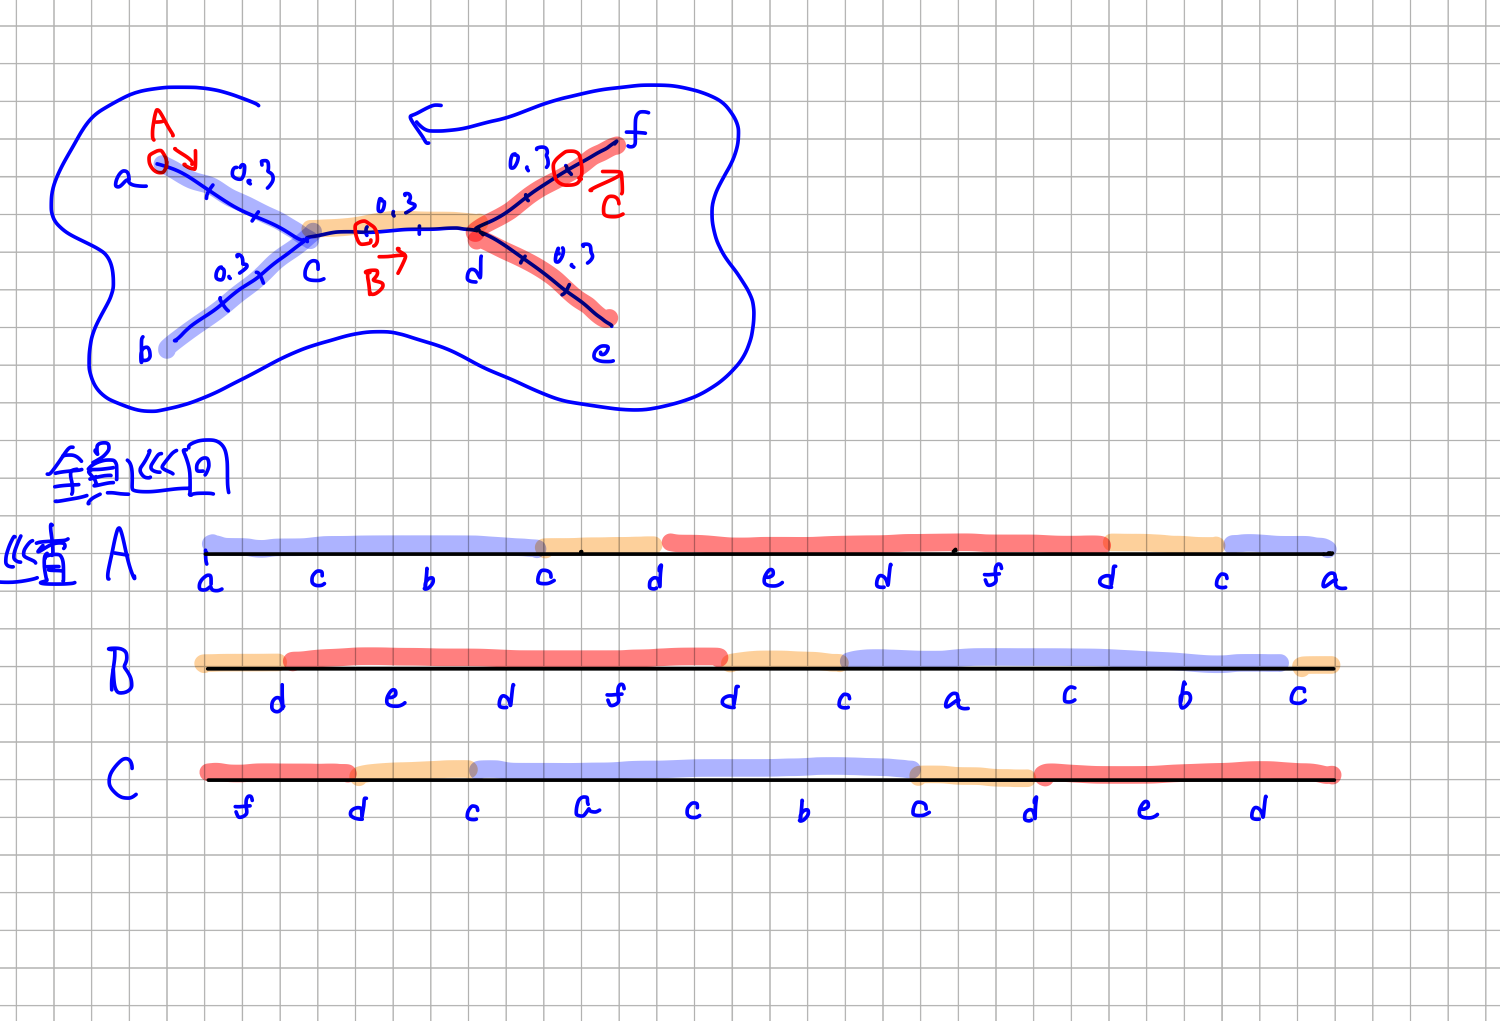 A
a 0.3 0.3 f
0.3 C
b 0.3 C B d 0.3 e
A
a c b c d e d f d c a
B
d e d f d c a c b c
C
f d c a c b c d e d